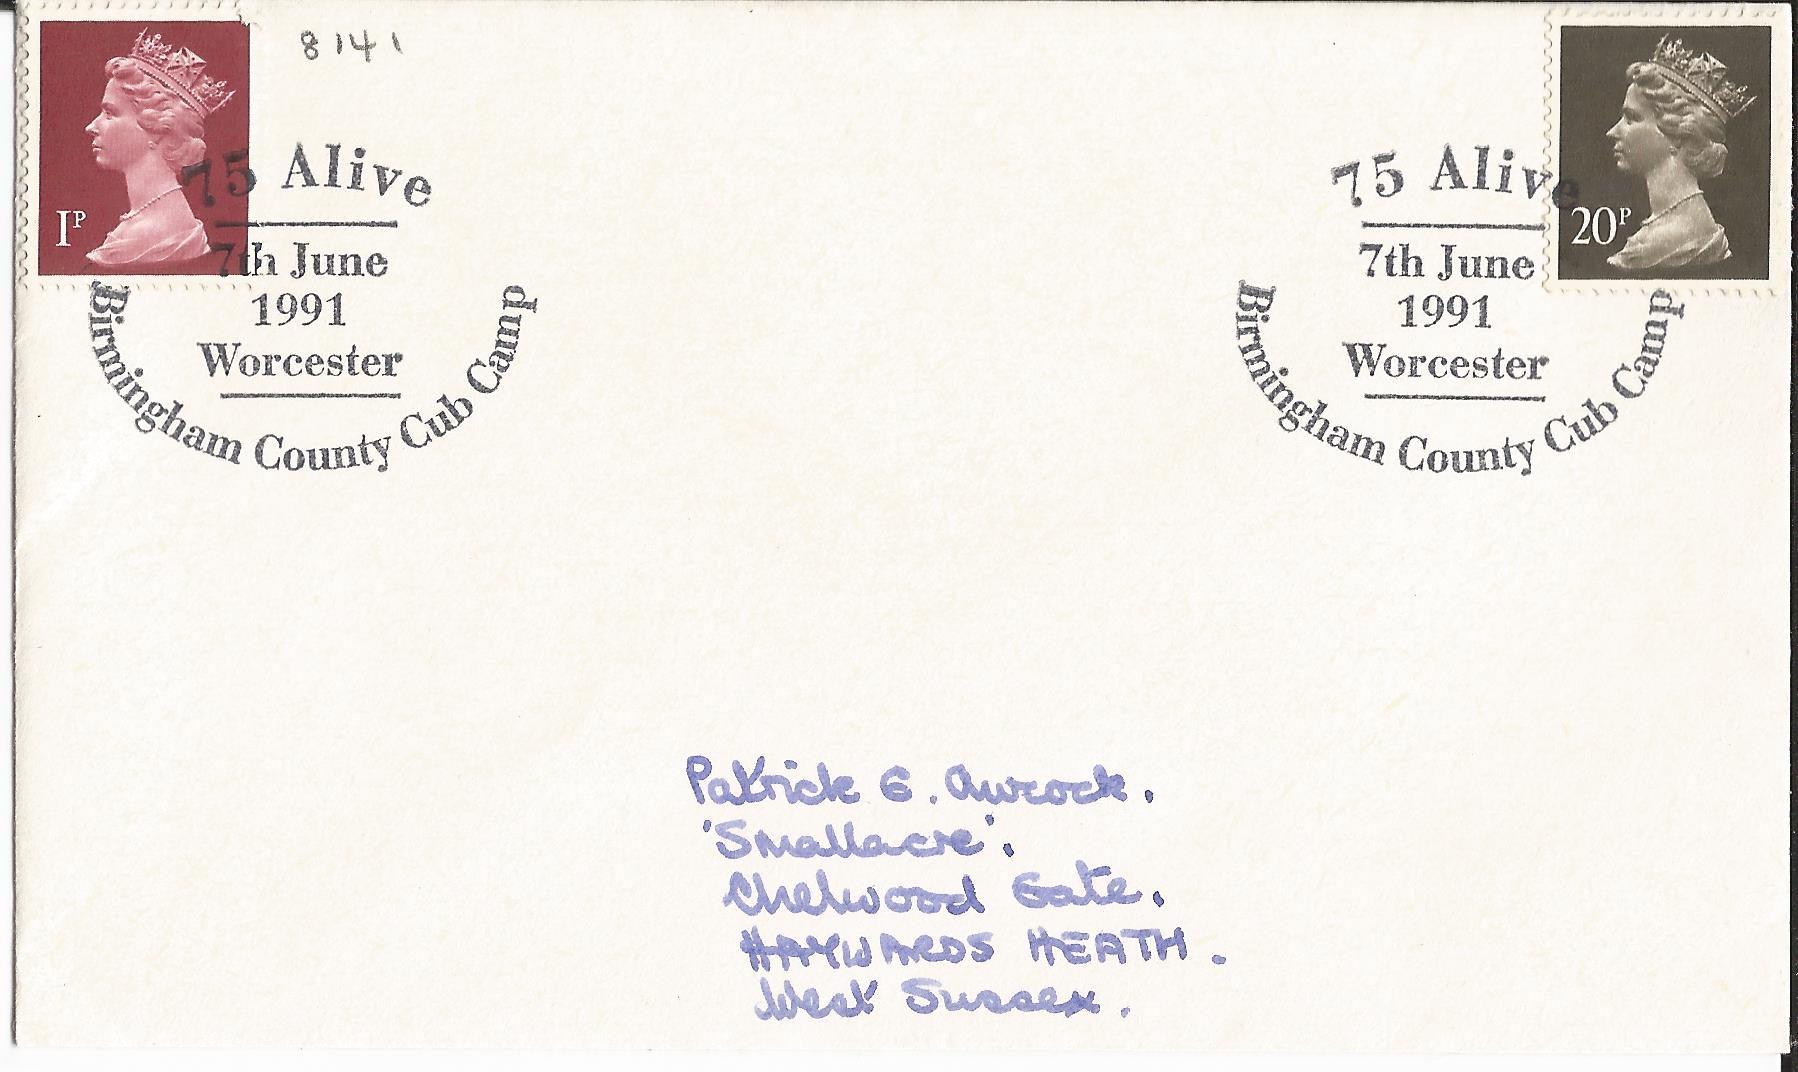 8141
1P
75 Alive
7th June
1991
Worcester
Birmingham County Cub Camp
20P
75 Alive
7th June
1991
Worcester
Birmingham County Cub Camp
Patrick G. Awcock.
'Smallacre'.
Chelwood Gate.
HAYWARDS HEATH.
West Sussex.